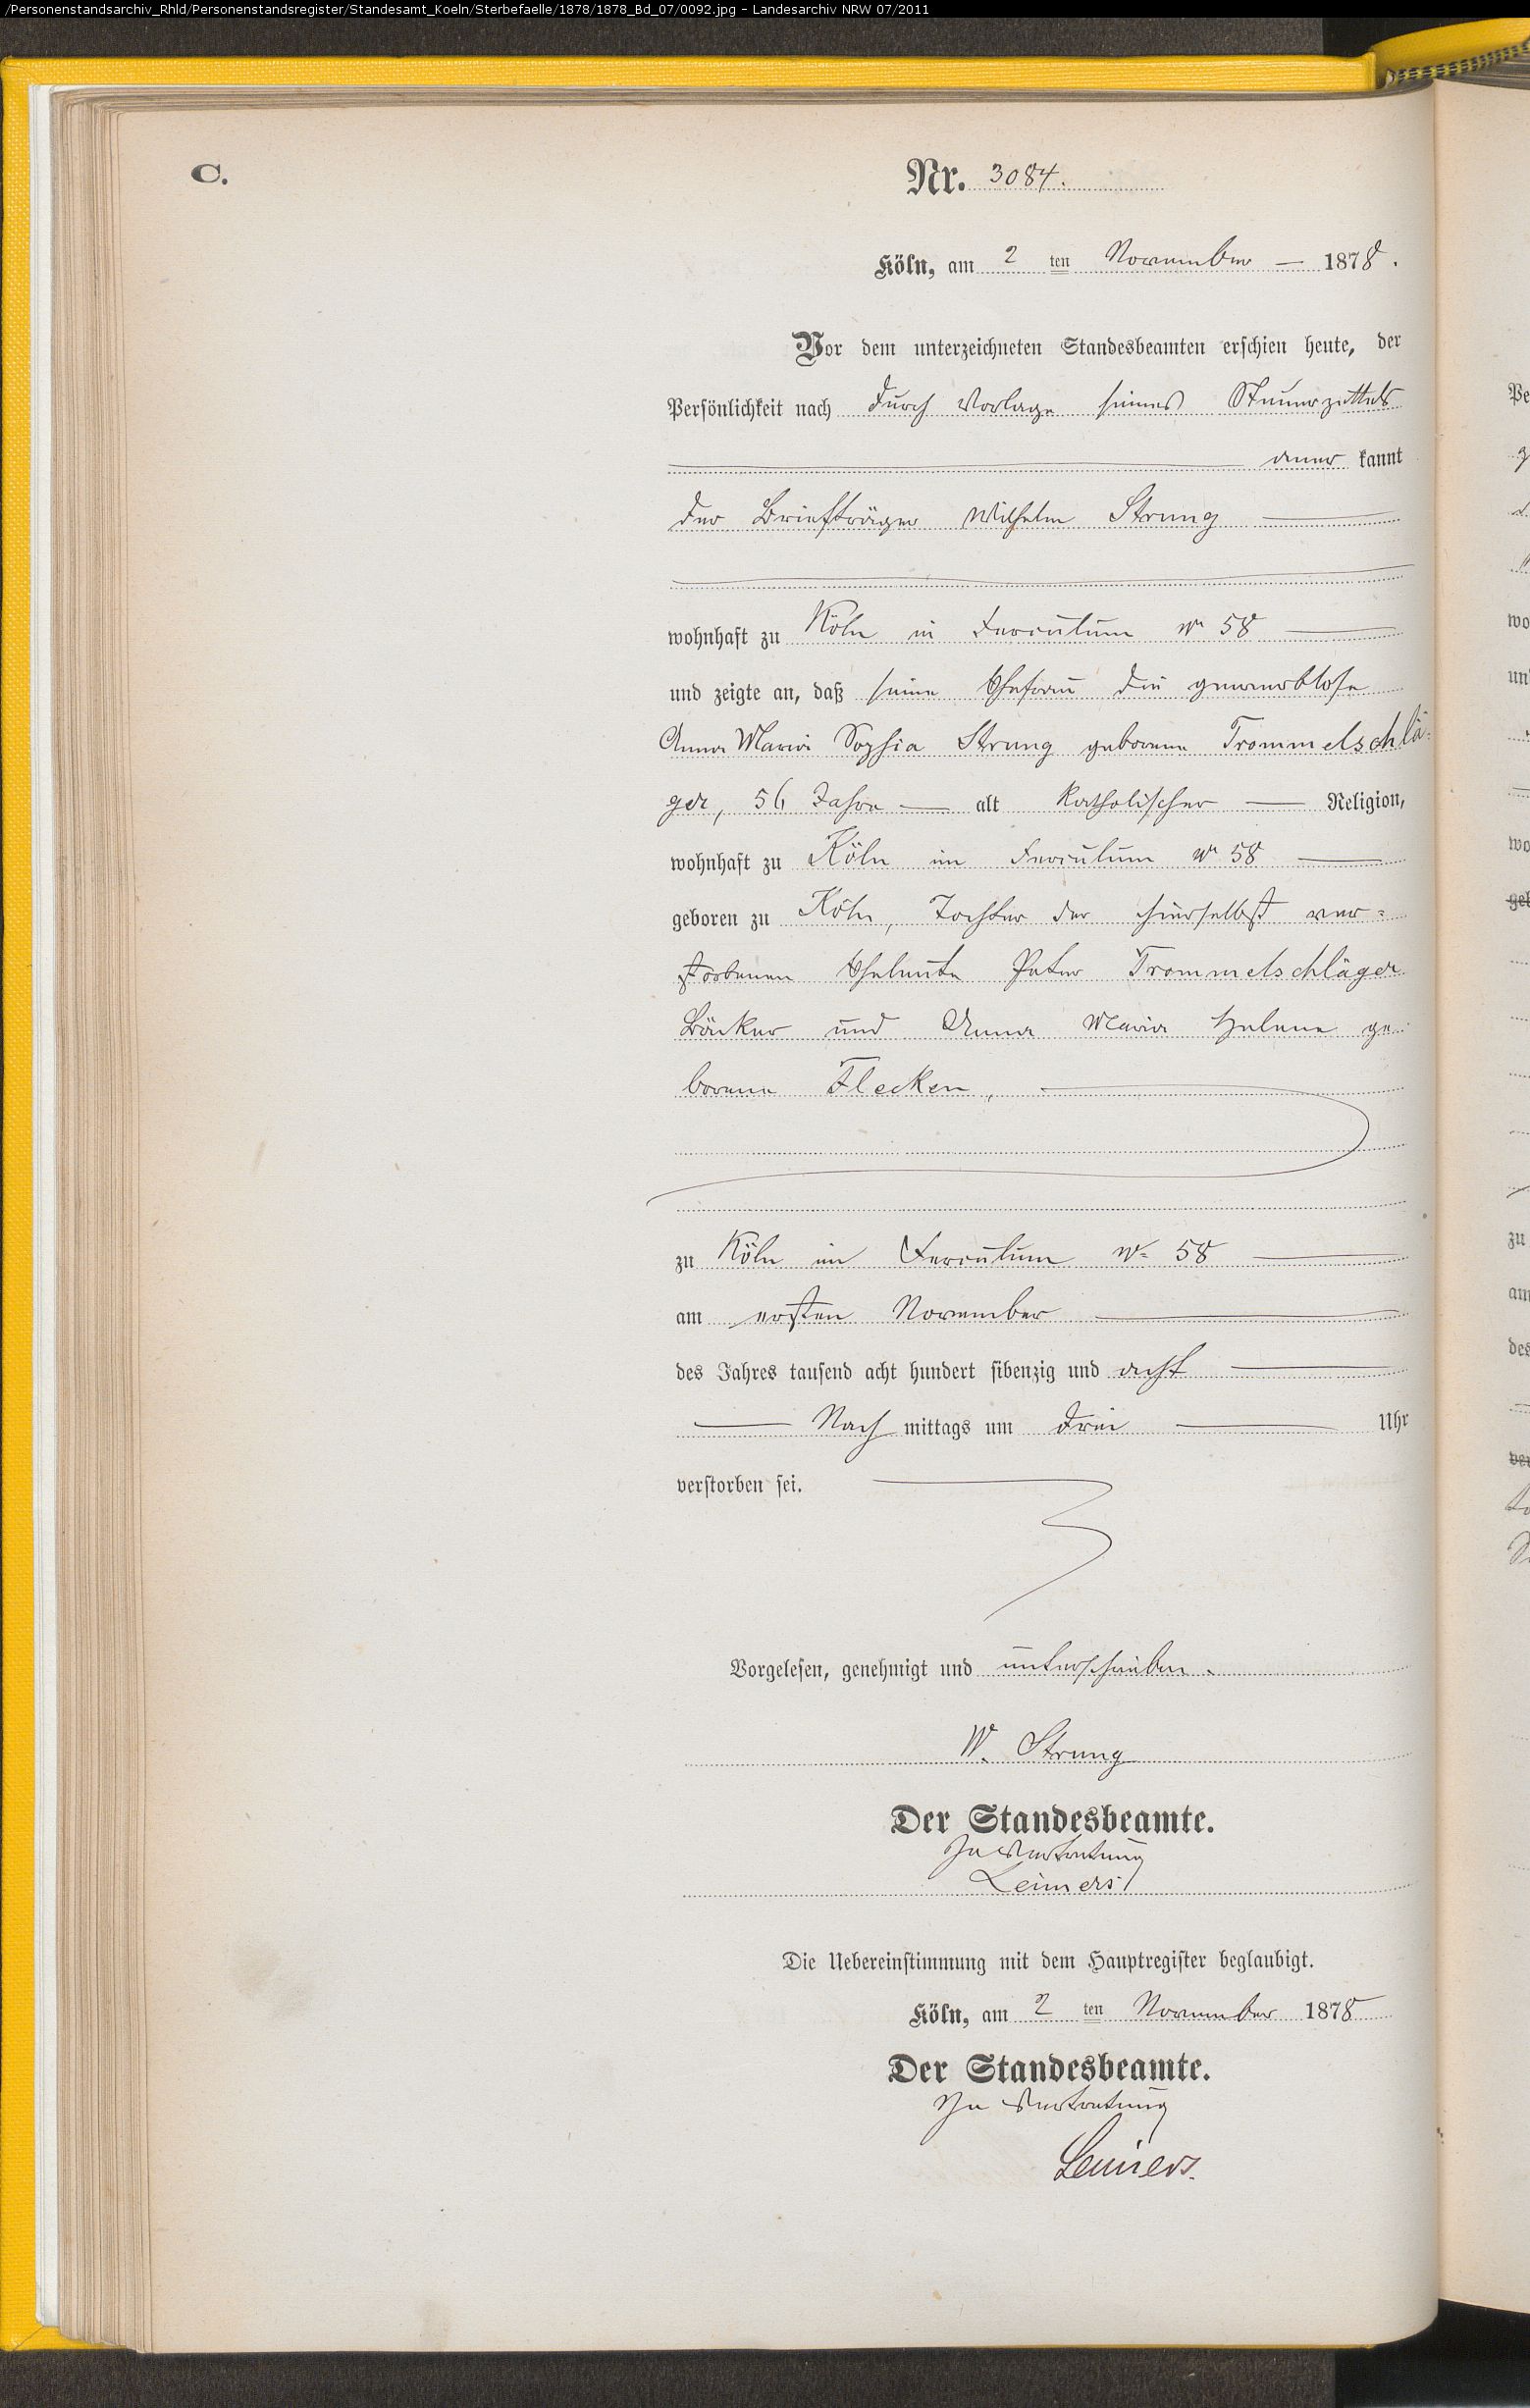 /Personenstandsarchiv_Rhld/Personenstandsregister/Standesamt_Koeln/Sterbefaelle/1878/1878_Bd_07/0092.jpg - Landesarchiv NRW 07/2011
C.
Nr. 3084.
Köln, am 2 ten November — 1878.
Vor dem unterzeichneten Standesbeamten erschien heute, der
Persönlichkeit nach durch Vorlage seines Steuerzettels
aner kannt
der Briefträger Wilhelm Strung
wohnhaft zu Köln im Ferculum Nr 58
und zeigte an, daß seine Ehefrau die gewerblose
Anna Maria Sophia Strung geborene Trommelschlä-
ger, 56 Jahre — alt katholischer — Religion,
wohnhaft zu Köln im Ferculum Nr 58
geboren zu Köln, Tochter der hierselbst ver=
storbenen Eheleute Peter Trommelschläger
Bäcker und Anna Maria Helene ge-
borene Flecken,
zu Köln im Ferculum Nr 58
am ersten November
des Jahres tausend acht hundert sibenzig und acht
Nach mittags um drei Uhr
verstorben sei.
Vorgelesen, genehmigt und unterschrieben.
W. Strung
Der Standesbeamte.
In Vertretung
Leimers
Die Uebereinstimmung mit dem Hauptregister beglaubigt.
Köln, am 2 ten November 1878
Der Standesbeamte.
In Vertretung
Leimers.